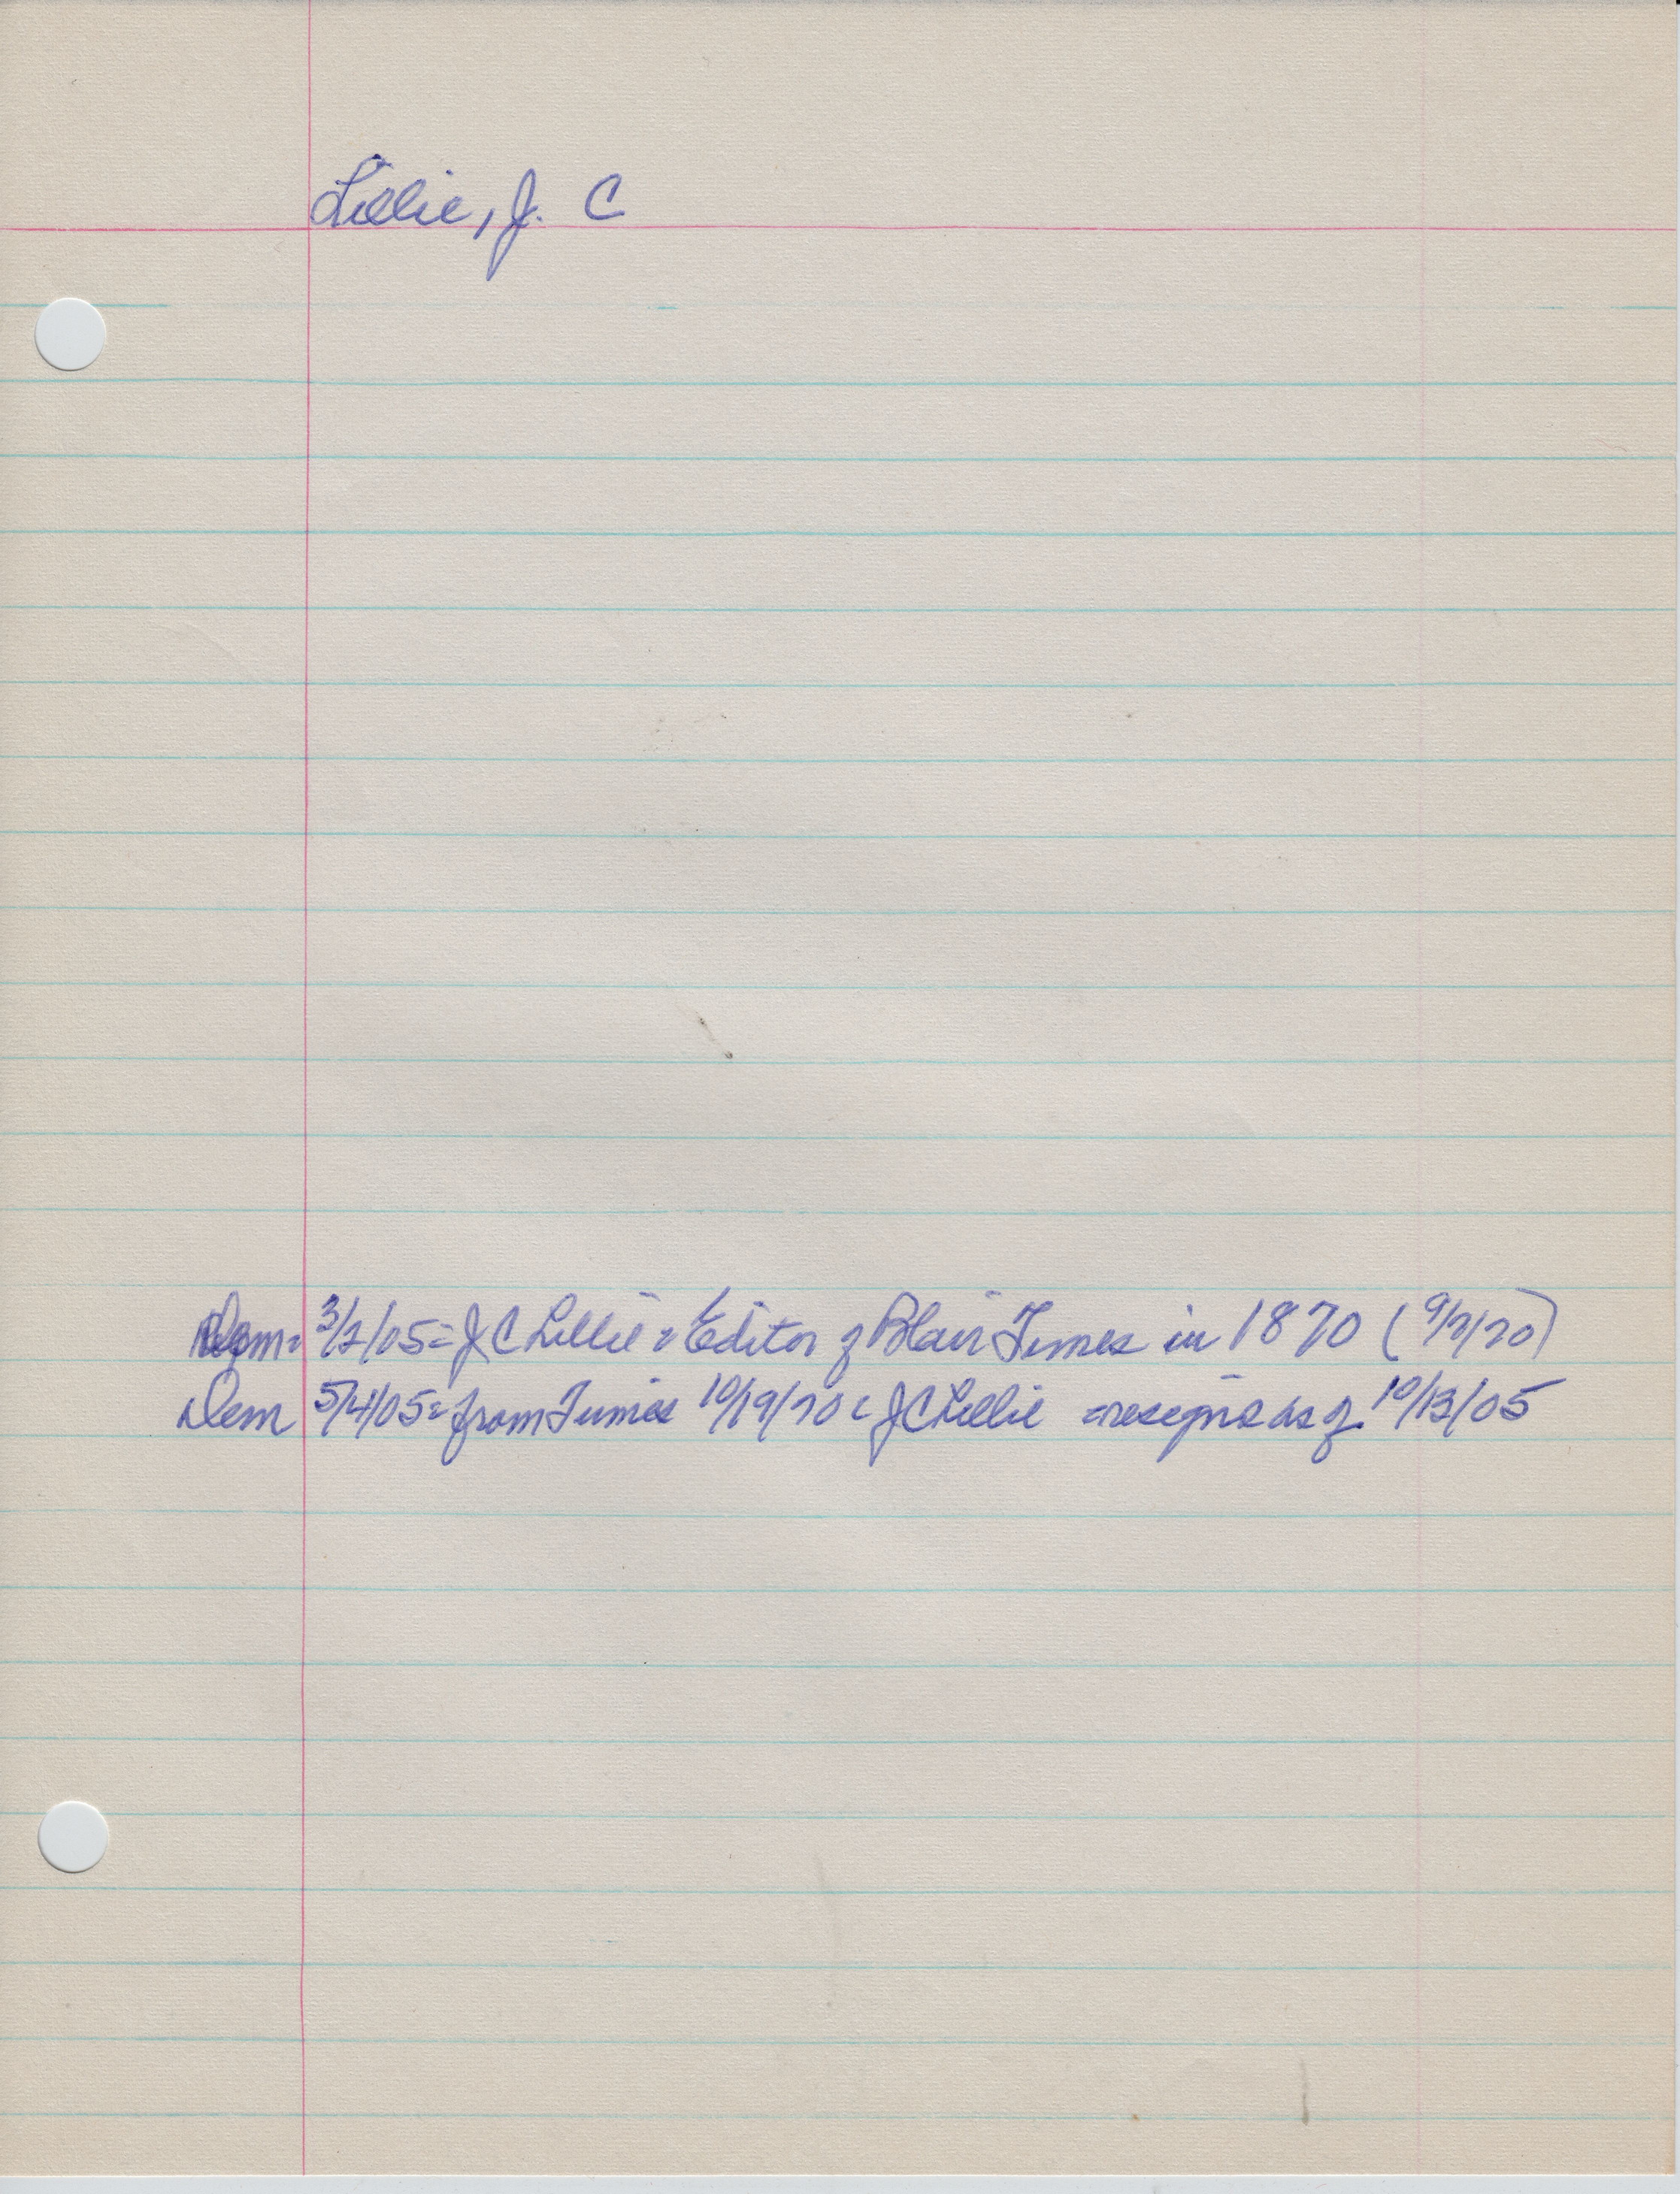 Lillie, J. C
Dem= 3/2/05= J C Lillie = Editor of Blair Times in 1870 (9/7/70)
Dem 5/4/05= from Times 10/19/70 = J C Lillie =resigns as of 10/13/05